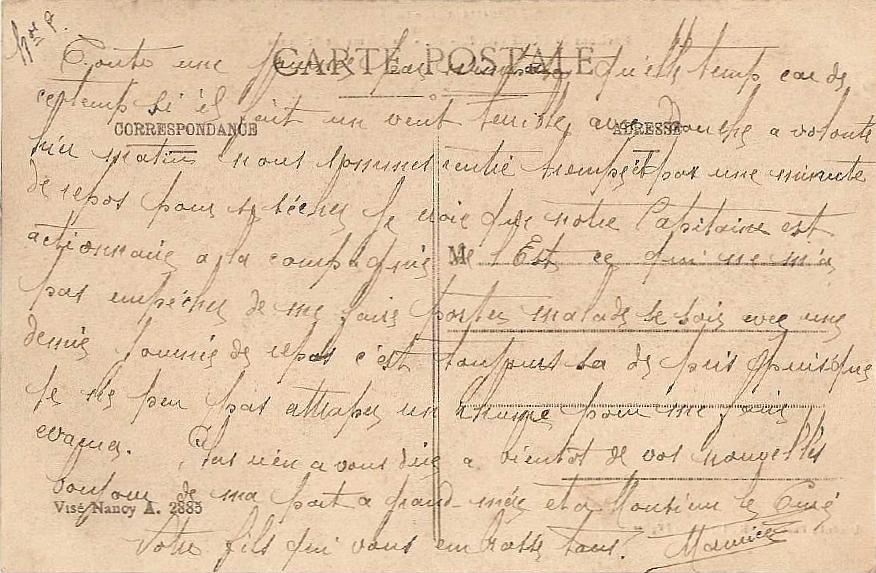 CARTE POSTALE
CORRESPONDANCE
ADRESSE
Toute une journee pas temps qu'elle temp car de
ce temp si il fait un vent terrible, avec douche a volonté
hier matin nous sommes rentré trempé et pas une minute
de repos pour se sécher je crois que notre Capitaine est
actionnaire a la compagnie de l'Est ce qui ne m'a
M
pas empécher de me faire porter malade ce soir avec une
demie journée de repos c'est toujours sa de pris puisque
je ne peu pas attraper un rhume pour me faire
evacuer.
Plus rien a vous dire a bientot de vos nouvelles
bonjour de ma part a grand-mére et a Monsieur le Curé
Visé Nancy A. 2885
Votre fils qui vous embrasse tous. Maurice